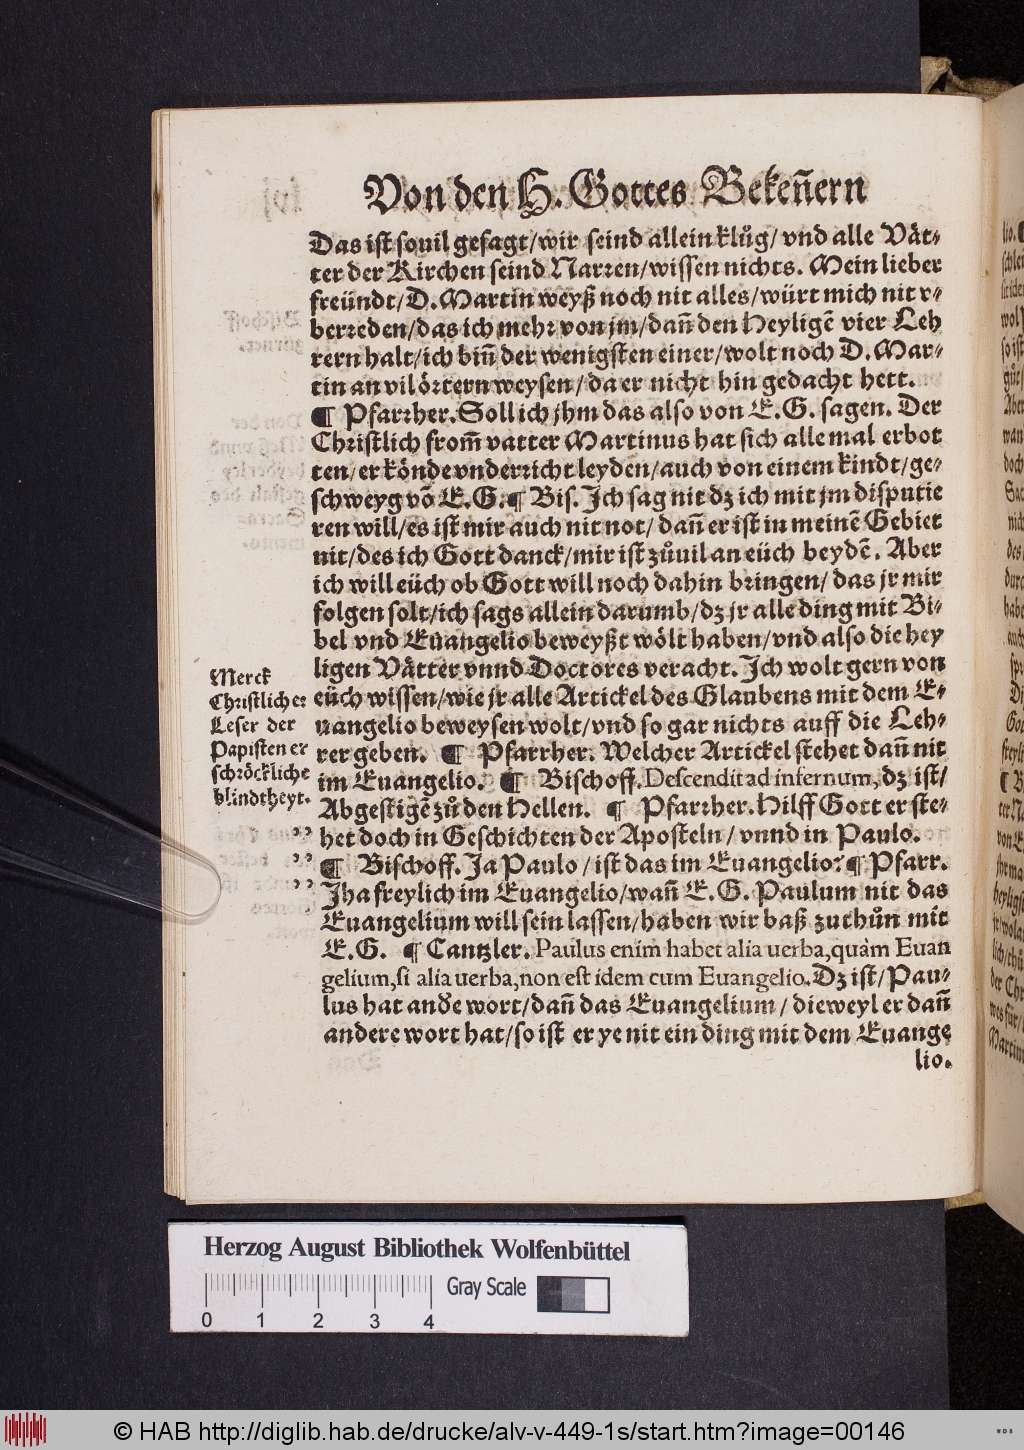 Von den H. Gottes Bekeñern
Das ist souil gesagt/wir seind allein klůg/ vnd alle Vät⸗
ter der Kirchen seind Narren/wissen nichts. Mein lieber
freündt/D. Martin weyß noch nit alles/würt mich nit v⸗
berreden/das ich mehr von jm/dañ den Heyligẽ vier Leh
rern halt/ich biñ der wenigsten einer/wolt noch D. Mar⸗
tin an vil örtern weysen/da er nicht hin gedacht hett.
¶ Pfarrher. Soll ich jhm das also von E.G. sagen. Der
Christlich from̃ vatter Martinus hat sich alle mal erbot
ten/er könde vnderricht leyden/auch von einem kindt/ge⸗
schweyg võ E.G. ¶ Bis. Jch sag nit dz ich mit jm disputie
ren will/es ist mir auch nit not/ dañ er ist in meinẽ Gebiet
nit/des ich Gott danck/mir ist zůuil an eüch beydẽ. Aber
ich will eüch ob Gott will noch dahin bringen/ das jr mir
folgen solt/ich sags allein darumb/dz jr alle ding mit Bi⸗
bel vnd Euangelio beweyßt wölt haben/vnd also die hey
ligen Vätter vnnd Doctores veracht. Jch wolt gern von
eüch wissen/wie jr alle Artickel des Glaubens mit dem E⸗
uangelio beweysen wolt/vnd so gar nichts auff die Leh⸗
rer geben. ¶ Pfarrher. Welcher Artickel stehet dañ nit
im Euangelio. ¶ Bischoff. Descendit ad infernum, dz ist/
Abgestigẽ zů den Hellen. ¶ Pfarrher. Hilff Gott er ste⸗
het doch in Geschichten der Aposteln/ vnnd in Paulo.
¶ Bischoff. Ja Paulo/ ist das im Euangelio? ¶ Pfarr.
Jha freylich im Euangelio/wañ E.G. Paulum nit das
Euangelium will sein lassen/haben wir baß zuthůn mit
E.G. ¶ Cantzler. Paulus enim habet alia uerba, quàm Euan
gelium, si alia uerba, non est idem cum Euangelio. Dz ist/Pau⸗
lus hat andere wort/dañ das Euangelium/ dieweyl er dañ
andere wort hat/so ist er ye nit ein ding mit dem Euange
lio.
Merck
Christlicher
Leser der
Papisten er
schröckliche
blindtheyt.
,,
,,
,,
Herzog August Bibliothek Wolfenbüttel
Gray Scale
0 1 2 3 4
© HAB http://diglib.hab.de/drucke/alv-v-449-1s/start.htm?image=00146